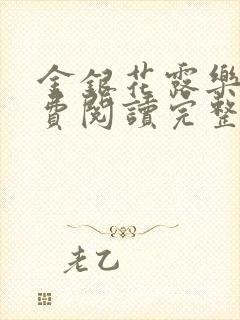 金銀花露樂
費閱讀完整
老乙